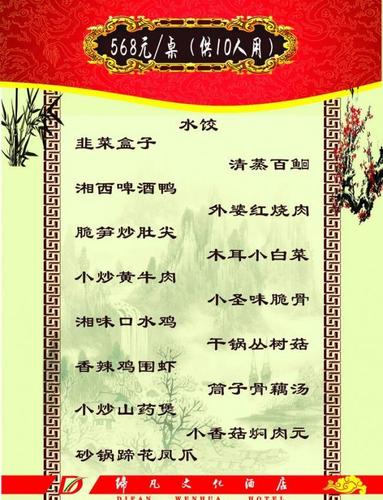 568元/桌（供10人用）
水饺
韭菜盒子
清蒸百鮰
湘西啤酒鸭
外婆红烧肉
脆笋炒肚尖
木耳小白菜
小炒黄牛肉
小圣味脆骨
湘味口水鸡
干锅丛树菇
香辣鸡围虾
筒子骨藕汤
小炒山药煲
小香菇焖肉元
砂锅蹄花凤爪
缔凡文化酒店
DIFAN WENHUA HOTEL